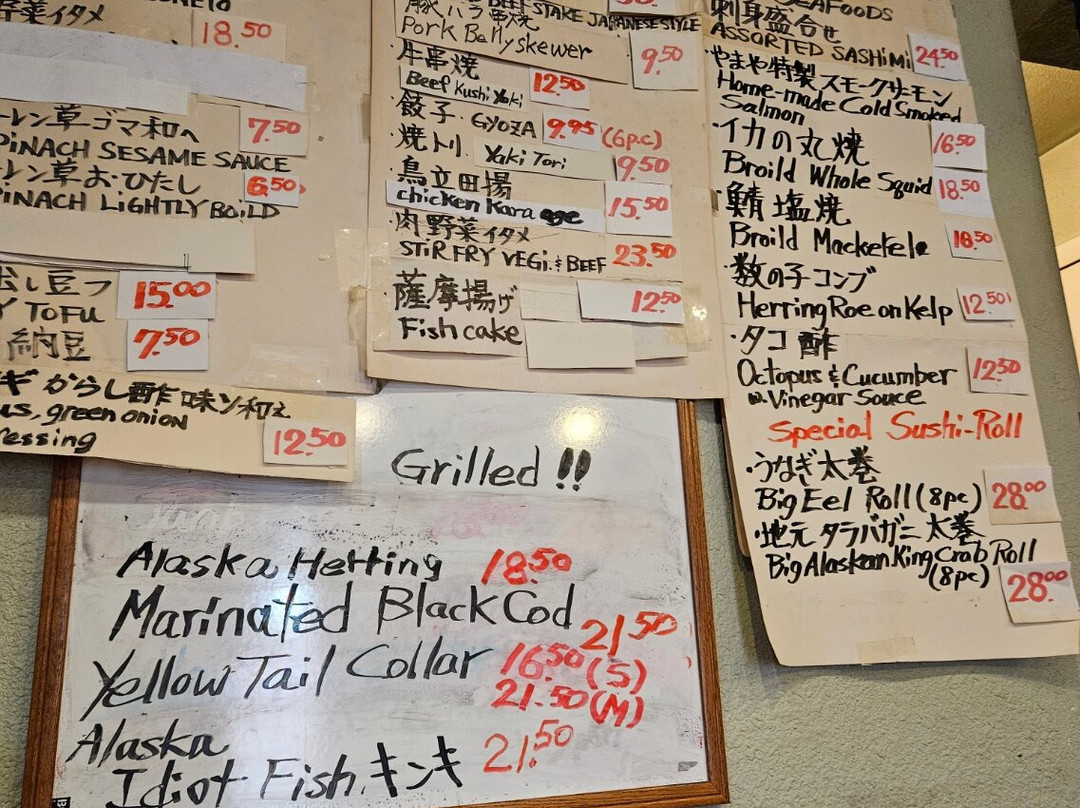 野菜イタメ
18.50
ーレン草ゴマ和へ 7.50
PiNACH SESAME SAUCE
ーレン草お・ひたし 6.50
PiNACH LiGHTLY BoiLD
出し豆フ 15.00
Y TOFU
納豆 7.50
ギ からし酢味ソ和え
us, green onion
ressing 12.50
BEEF STAKE JAPANESE STYLE
豚バラ串焼
Pork Bellyskewer 9.50
牛串焼 12.50
Beef Kushi Yaki
餃子 GYOZA 9.95 (6p.c)
焼トリ Yaki Tori 9.50
鳥立田揚 15.50
chicken Kara age
肉野菜イタメ 23.50
STiR FRY VEGi. & BEEF
薩摩揚げ 12.50
Fish cake
SEAFOODS
刺身盛合せ
ASSORTED SASHiMi 24.50
・やまや特製スモークサーモン
Home-made Cold Smoked
Salmon 16.50
・イカの丸焼
Broild Whole Squid 18.50
・鯖塩焼
Broild Mackerele 18.50
・数の子コンブ
Herring Roe on Kelp 12.50
・タコ酢
Octopus & Cucumber 12.50
w. Vinegar Souce
Special Sushi-Roll
・うなぎ太巻
Big Eel Roll (8pc) 28.00
・地元 タラバガニ 太巻
Big Alaskan King Crab Roll
(8pc) 28.00
Grilled !!
Alaska Herring 18.50
Marinated Black Cod 21.50
Yellow Tail Collar 16.50 (S)
21.50 (M)
Alaska
Idiot Fish. キンキ 21.50